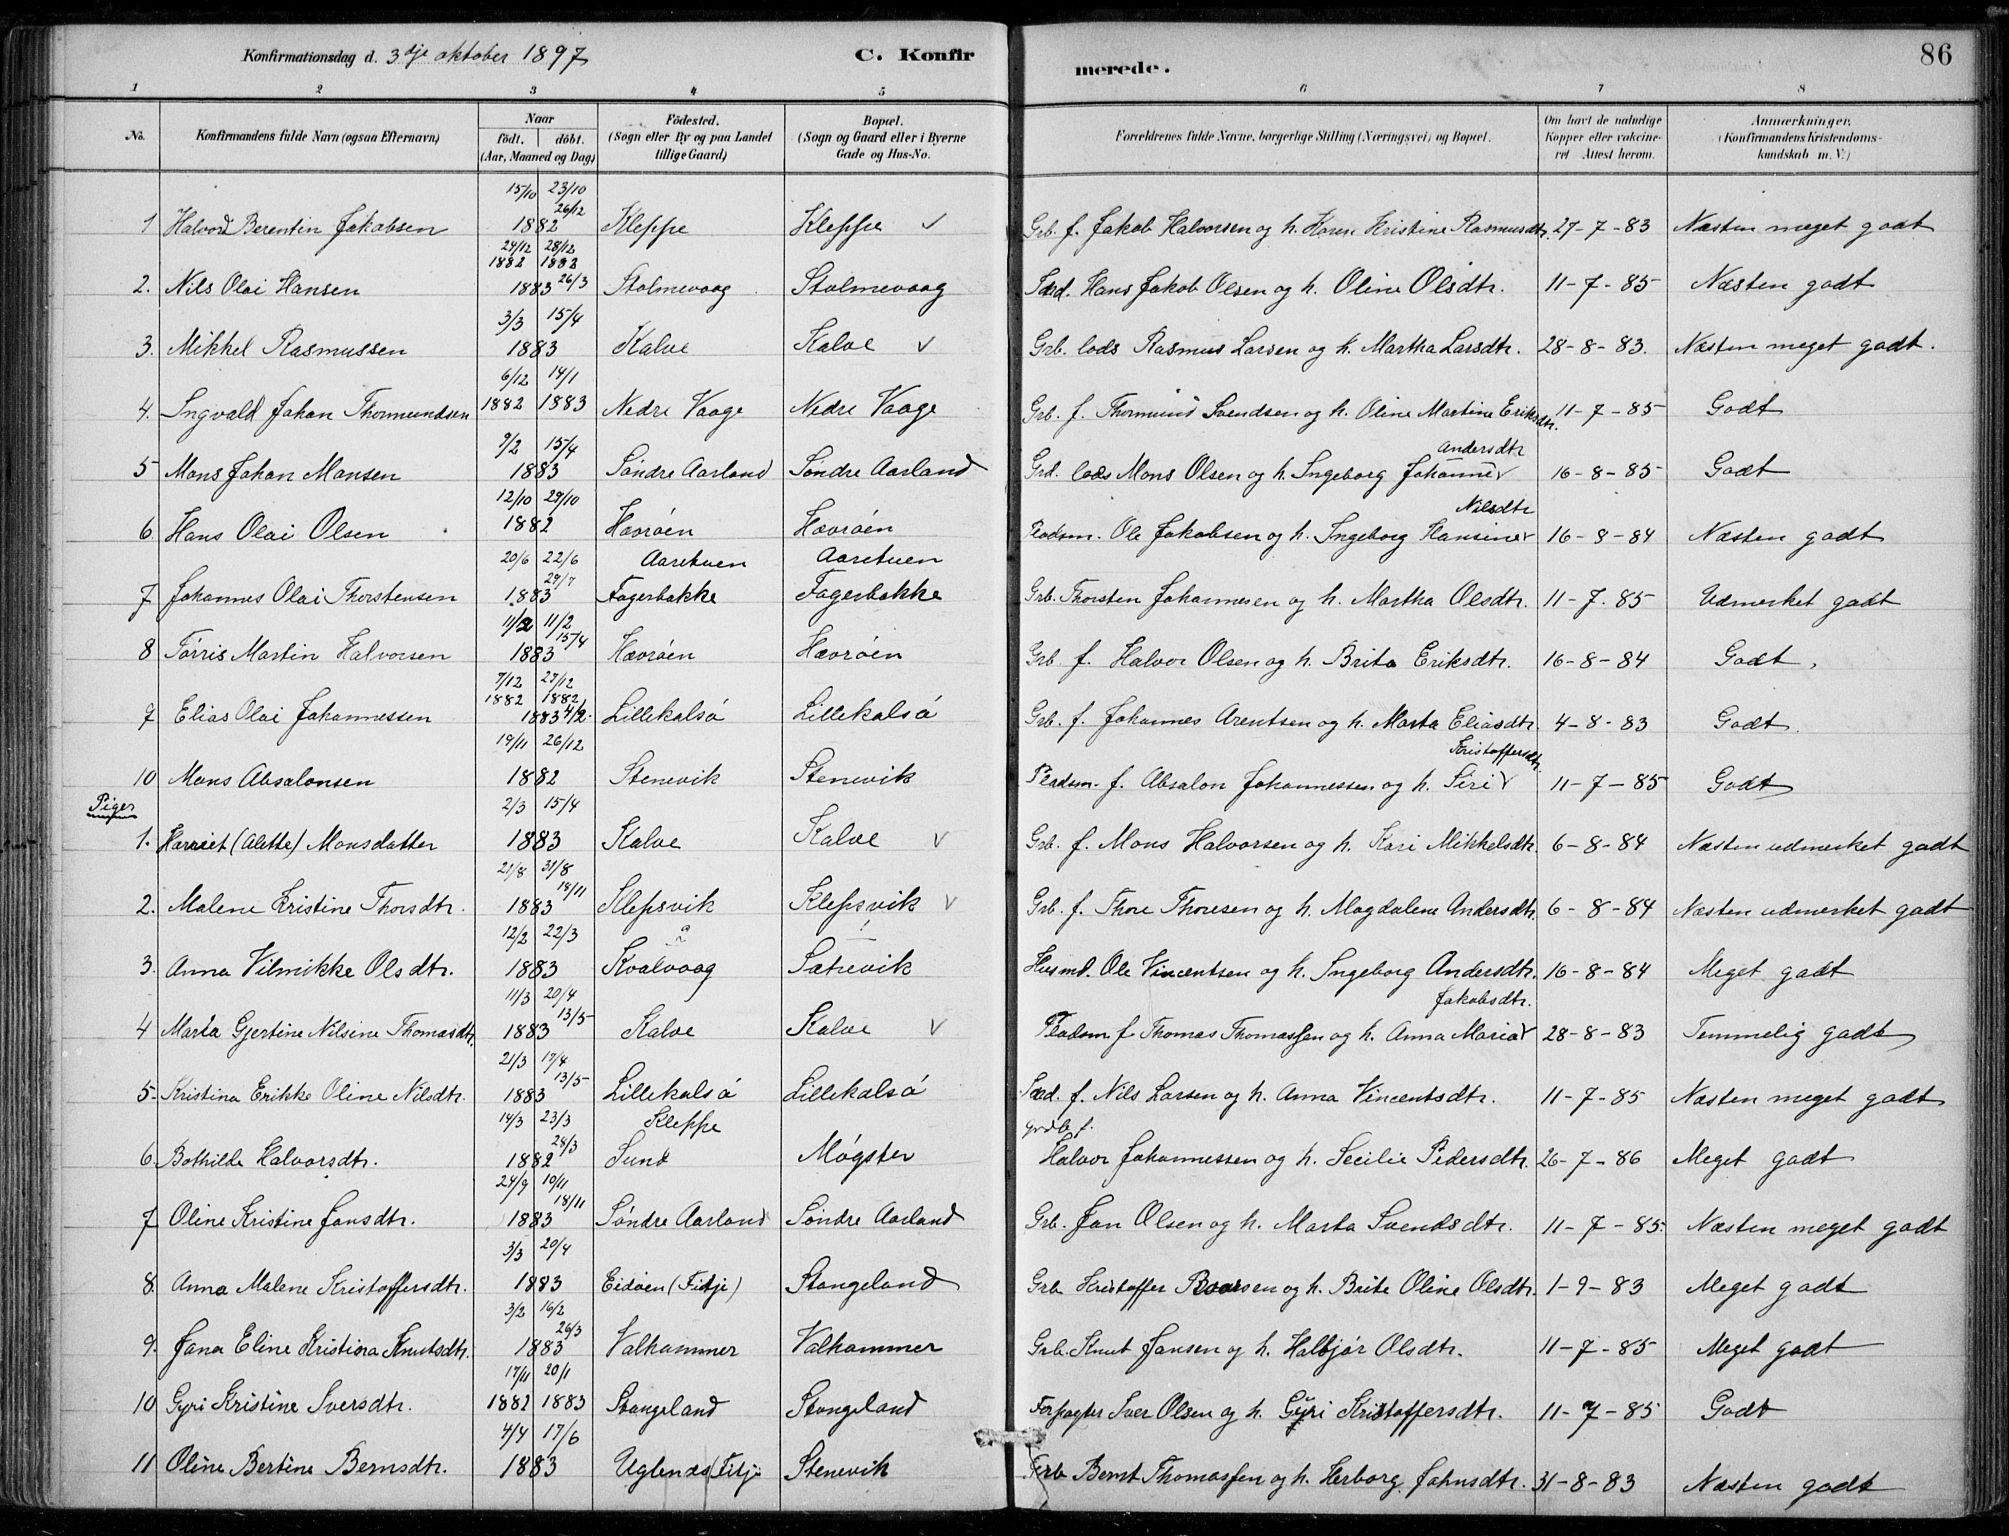 86
Konfirmationsdag d. 3dje oktober 1897 C. Konfir merede.
1 2 3 4 5 6 7 8
No. Konfirmandens fulde Navn (ogsaa Efternavn) Naar født. døbt. (Aar, Maaned og Dag) Födested. (Sogn eller By og paa Landet tillige Gaard) Bopæl. (Sogn og Gaard eller i Byerne Gade og Hus-No. Forældrenes fulde Navne, borgerlige Stilling (Næringsvei) og Bopæl. Om havt de naturlige Kopper eller vakcineret Attest herom. Anmærkninger. (Konfirmandens Kristendomskundskab m.V.)
1 Halvord Berentin Jakobsen 15/10 1882 23/10 26/12 Kleppe Kleppe Grb. f. Jakob Halvorsen og h. Karen Kristine Rasmusdtr. 27-7-83 Næsten meget godt
2. Nils Olai Hansen 24/12 1882 28/12 1882 1883 26/3 Stolmevaag Stolmevaag Hans Jakob Olsen og h. Oline Olsdtr. 11-7-85 Næsten godt
3. Mikkel Rasmussen 3/3 15/4 1883 Kalve Kalve Grb. lods Rasmus Larsen og h. Martha Larsdtr. 28-8-83. Næsten meget godt.
4. Ingvald Johan Thormundsen 6/12 1882 14/1 1883 Nedre Vaage Nedre Vaage Grb. f. Thormund Svendsen og h. Oline Martine Eriksdtr. 11-7-85 Godt
5 Mons Johan Monsen 9/2 15/4 1883 Søndre Aarland Søndre Aarland Grd. lods Mons Olsen og h. Ingeborg Johanne Andersdtr 16-8-85 Godt
6. Hans Olai Olsen 12/10 29/10 1882 Hævrøen Hævrøen Pladsm. Ole Jakobsen og h. Ingeborg Hansine Nilsdtr 16-8-84 Næsten godt
7 Johannes Olai Thorstensen 20/6 22/6 29/7 1883 Aaretuen Fagerbakke Aaretuen Fagerbakke Grb. Thorsten Johannesen og h. Martha Olsdtr. 11-7-85 Udmerket godt
8 Tørris Martin Halvorsen 11/2 11/2 15/4 1883 Hævrøen Hævrøen Grb f. Halvor Olsen og h. Brita Eriksdtr. 16-8-84 Godt.
9 Elias Olai Johannessen 7/12 1882 27/12 1882 1883 4/2. Lillekalsø Lillekalsø Grb. f. Johannes Arentsen og h. Marta Eliasdtr. 4-8-83 Godt.
10 Mons Absalonsen 19/11 26/12 1882 Stenevik Stenevik Pladsm. f. Absalon Johannessen og h. Siri Kristoffersdtr. 11-7-85 Godt
Piger
1. Harriet (Alette) Monsdatter 2/3 15/4 1883 Kalve Kalve Grb. f. Mons Halvorsen og h. Kari Mikkelsdtr. 6-8-84 Næsten udmerket godt
2. Malene Kristine Thorsdtr. 21/8 31/8 18/11 1883 Klepsvik Klepsvik Grb. f. Thore Thoresen og h. Magdalene Andersdtr. 6-8-84 Næsten udmerket godt
3. Anna Vilmikke Olsdtr. 12/2 22/3 1883 Kvalvaag Sætrevik Husmd. Ole Vincentsen og h. Ingeborg Andersdtr. 16-8-84 Meget godt
4 Marta Gjertine Nilsine Thomasdtr. 11/3 20/4 13/5 1883 Kalve Kalve Pladsm. f Thomas Thomassen og h. Anna Maria Jakobsdtr. 28-8-83 Temmelig godt
5. Kristina Erikke Oline Nilsdtr. 21/3 17/4 13/5 1883 Lillekalsø Lillekalsø f. Nils Larsen og h. Anna Vincentsdtr. 11-7-85 Næsten meget godt
6. Bothilde Halvorsdtr. 14/3 23/3 28/3 1882 Kleppe Sund Møgster grdb f. Halvor Johannessen og h. Secilie Pedersdtr. 26-7-86 Meget godt
7 Oline Kristine Jansdtr. 24/9 10/11 18/11 1883 Søndre Aarland Søndre Aarland Grb. Jan Olsen og h. Marta Svendsdtr. 11-7-85. Næsten meget godt
8. Anna Malene Kristoffersdtr. 3/3 20/4 1883 Eidøen (Fitje) Stangeland Grb. Kristoffer Baarsen og h. Brite Oline Olsdtr. 1-9-83 Meget godt
9. Jana Eline Kristina Knutsdtr. 3/2 16/2 26/3 1883 Valhammer Valhammer Grb. Knut Jansen og h. Halbjør Olsdtr. 11-7-85 Meget godt
10 Gyri Kristine Iversdtr. 17/11 1882 20/1 1883 Stangeland Stangeland Forpagter Iver Olsen og h. Gyri Kristoffersdtr. 11-7-85 Godt
11 Oline Bertine Berntsdtr. 4/4 17/6 1883 Uglenæs (Fitje Stenevik Bernt Thomassen og h. Herborg Johnsdtr. 31-8-83 Næsten godt